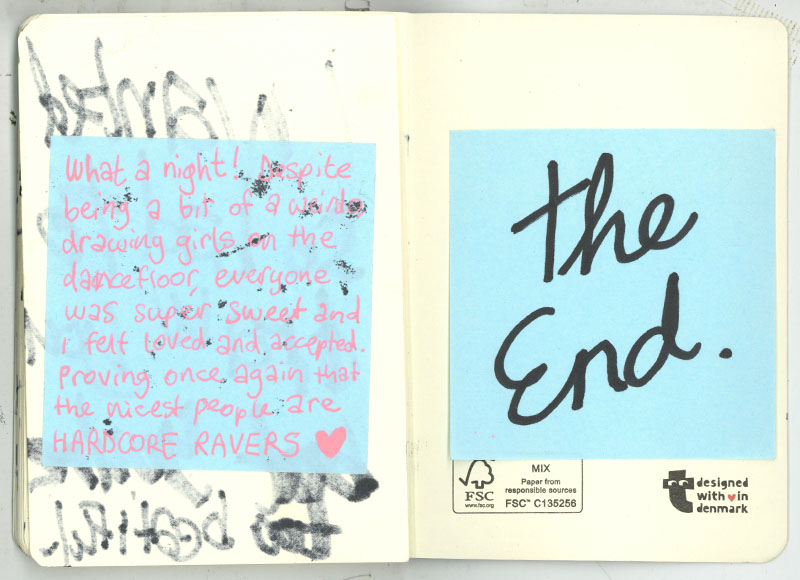 What a night! Despite
being a bit of a weirdo
drawing girls on the
dancefloor, everyone
was super sweet and
I felt loved and accepted.
Proving once again that
the nicest people are
HARDCORE RAVERS ♥
the
End.
FSC
www.fsc.org
MIX
Paper from
responsible sources
FSC™ C135256
designed
with ♥ in
denmark